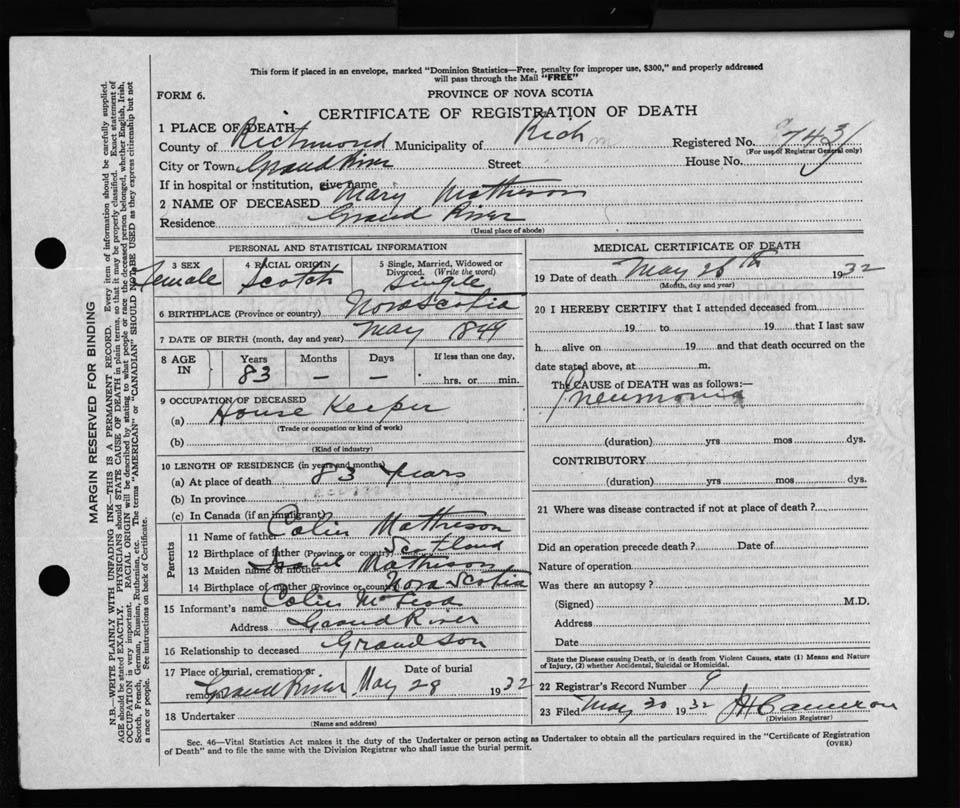 This form if placed in an envelope, marked "Dominion Statistics—Free, penalty for improper use, $300," and properly addressed
will pass through the Mail "FREE"
FORM 6.
PROVINCE OF NOVA SCOTIA
CERTIFICATE OF REGISTRATION OF DEATH
1 PLACE OF DEATH
County of Richmond Municipality of Rich Registered No. 743
(For use of Registrar General only)
City or Town Grand River Street House No.
If in hospital or institution, give name
2 NAME OF DECEASED Mary Matheson
Residence Grand River
(Usual place of abode)
PERSONAL AND STATISTICAL INFORMATION
3 SEX 4 RACIAL ORIGIN 5 Single, Married, Widowed or
Divorced. (Write the word)
Female Scotch Single
6 BIRTHPLACE (Province or country) Nova Scotia
7 DATE OF BIRTH (month, day and year) May 1849
8 AGE IN Years Months Days If less than one day,
83 — — hrs. or min.
9 OCCUPATION OF DECEASED
(a) House Keeper
(Trade or occupation or kind of work)
(b)
(Kind of industry)
10 LENGTH OF RESIDENCE (in years and months)
(a) At place of death 83 years
(b) In province
(c) In Canada (if an immigrant)
Parents
11 Name of father Colin Matheson
12 Birthplace of father (Province or country) Scotland
13 Maiden name of mother Isabel Matheson
14 Birthplace of mother (Province or country) Nova Scotia
15 Informant's name Colin McLeod
Address Grand River
16 Relationship to deceased Grand Son
17 Place of burial, cremation or Date of burial
removal Grand River May 28 1932
18 Undertaker
(Name and address)
MEDICAL CERTIFICATE OF DEATH
19 Date of death May 26th 1932
(Month, day and year)
20 I HEREBY CERTIFY that I attended deceased from
19 to 19 that I last saw
h alive on 19 and that death occurred on the
date stated above, at m.
The CAUSE of DEATH was as follows:—
Pneumonia
(duration) yrs mos dys.
CONTRIBUTORY
(duration) yrs mos dys.
21 Where was disease contracted if not at place of death?
Did an operation precede death? Date of
Nature of operation
Was there an autopsy?
(Signed) M.D.
Address
Date
State the Disease causing Death, or in death from Violent Causes, state (1) Means and Nature
of Injury, (2) whether Accidental, Suicidal or Homicidal.
22 Registrar's Record Number 9
23 Filed May 20 1932 J H Cameron
(Division Registrar)
Sec. 46—Vital Statistics Act makes it the duty of the Undertaker or person acting as Undertaker to obtain all the particulars required in the "Certificate of Registration
of Death" and to file the same with the Division Registrar who shall issue the burial permit.
(OVER)
MARGIN RESERVED FOR BINDING
N.B.—WRITE PLAINLY WITH UNFADING INK—THIS IS A PERMANENT RECORD. Every item of information should be carefully supplied.
AGE should be stated EXACTLY. PHYSICIANS should STATE CAUSE OF DEATH in plain terms, so that it may be properly classified. Exact statement of
OCCUPATION is very important. RACIAL ORIGIN will be described by stating to what people or race the deceased person belonged, whether English, Irish,
Scotch, French, German, Russian, Ruthenian, etc. The terms "AMERICAN" or "CANADIAN" SHOULD NOT BE USED as they express citizenship but not
a race or people. See instructions on back of Certificate.